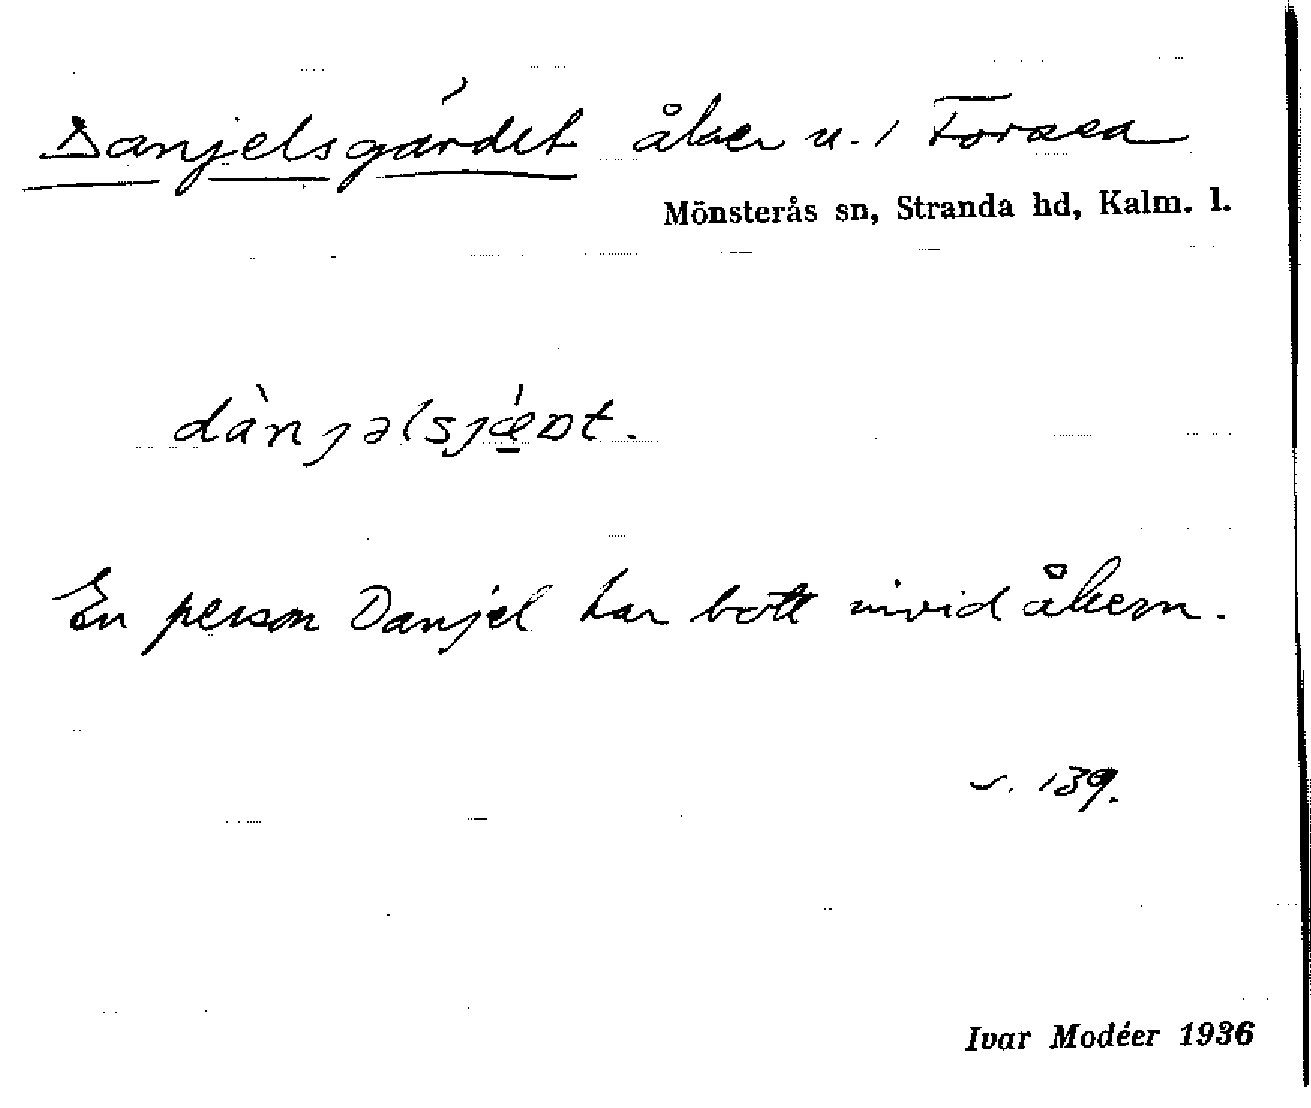 Danjelsgärdet åker u. 1 Forsea
Mönsterås sn, Stranda hd, Kalm. l.
dànjəlsjǽᴅt.
En person Danjel har bott invid åkern.
s. 139.
Ivar Modéer 1936